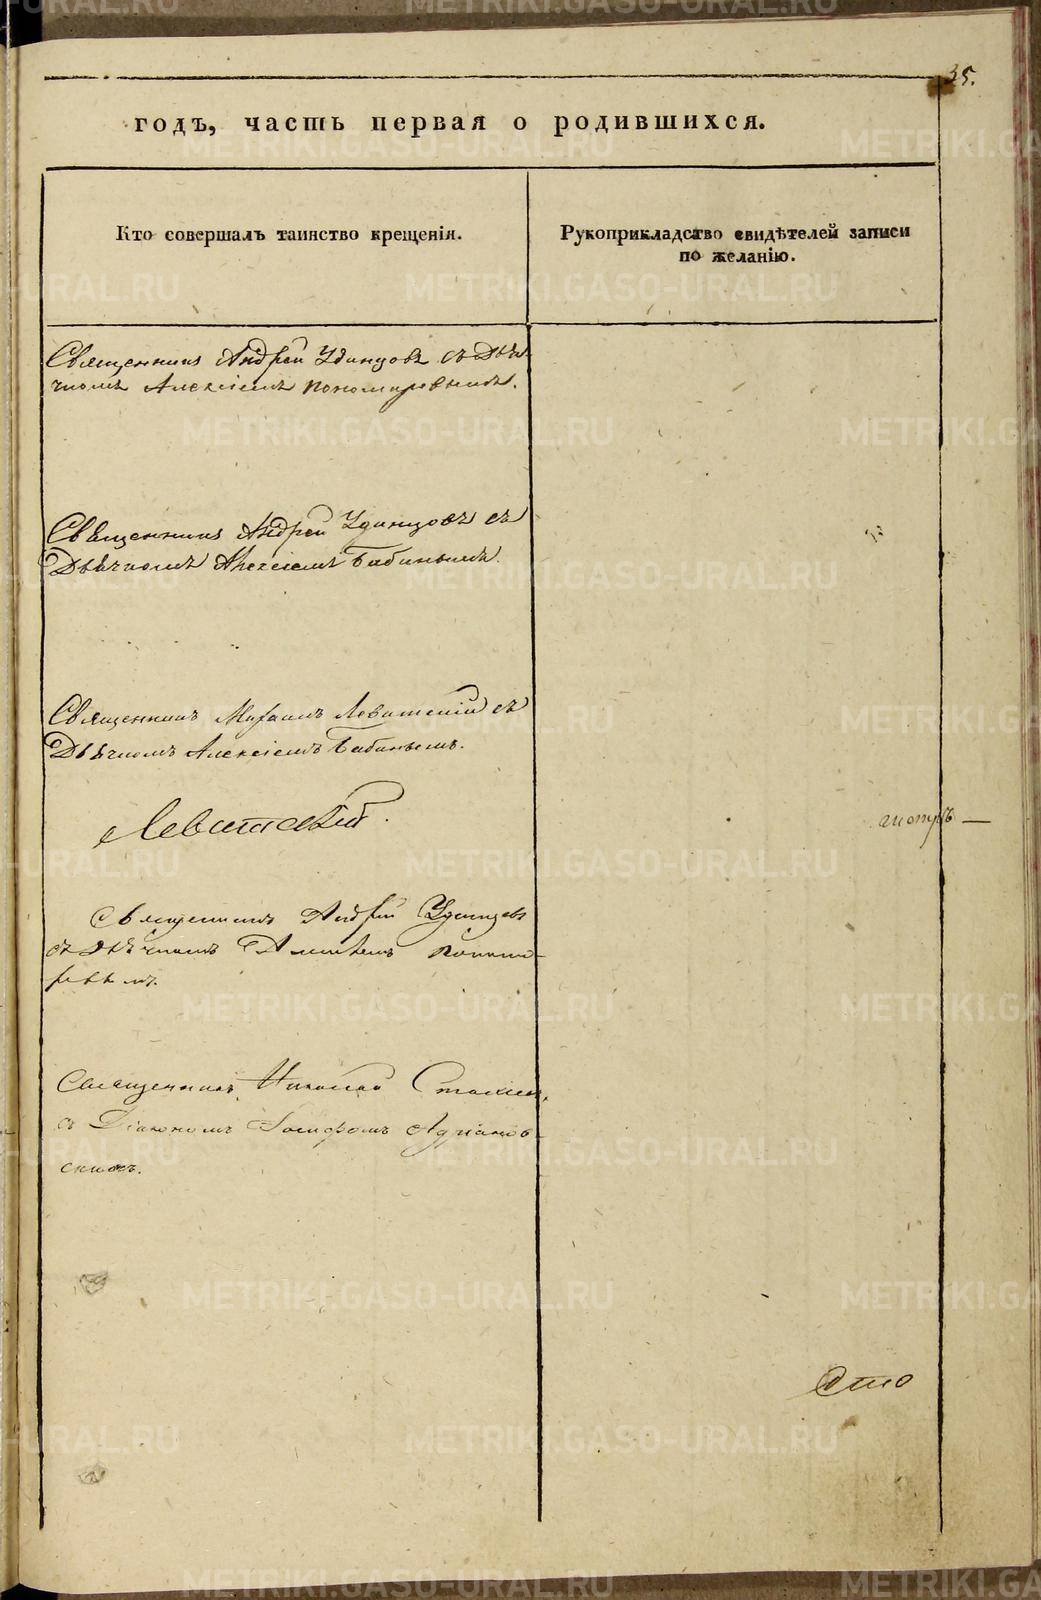 35.
годъ, часть первая о родившихся.
Кто совершалъ таинство крещенія.
Рукоприкладство свидѣтелей записи
по желанію.
Священникъ Андрей Удинцовъ съ Дьяч
комъ Алексіемъ Пономаревымъ.
Священникъ Андрей Удинцовъ съ
Дьячкомъ Алексіемъ Бабинымъ.
Священникъ Михаилъ Левитскій съ
Дьячкомъ Алексіемъ Бабинымъ.
Левитскій.
Священникъ Андрей Удинцовъ
съ дьячкомъ Понома-
ревымъ.
Священникъ Николай
съ Діакономъ Іосифомъ Адріанов-
скимъ.
METRIKI.GASO-URAL.RU